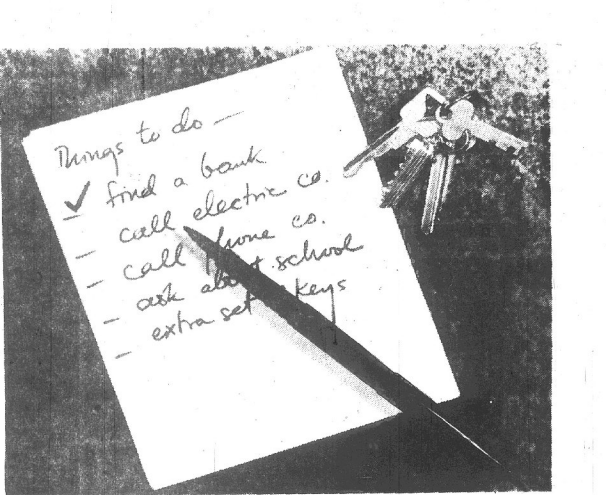 Things to do —
✓ find a bank
– call electric co.
– call phone co.
– ask about school
– extra set keys